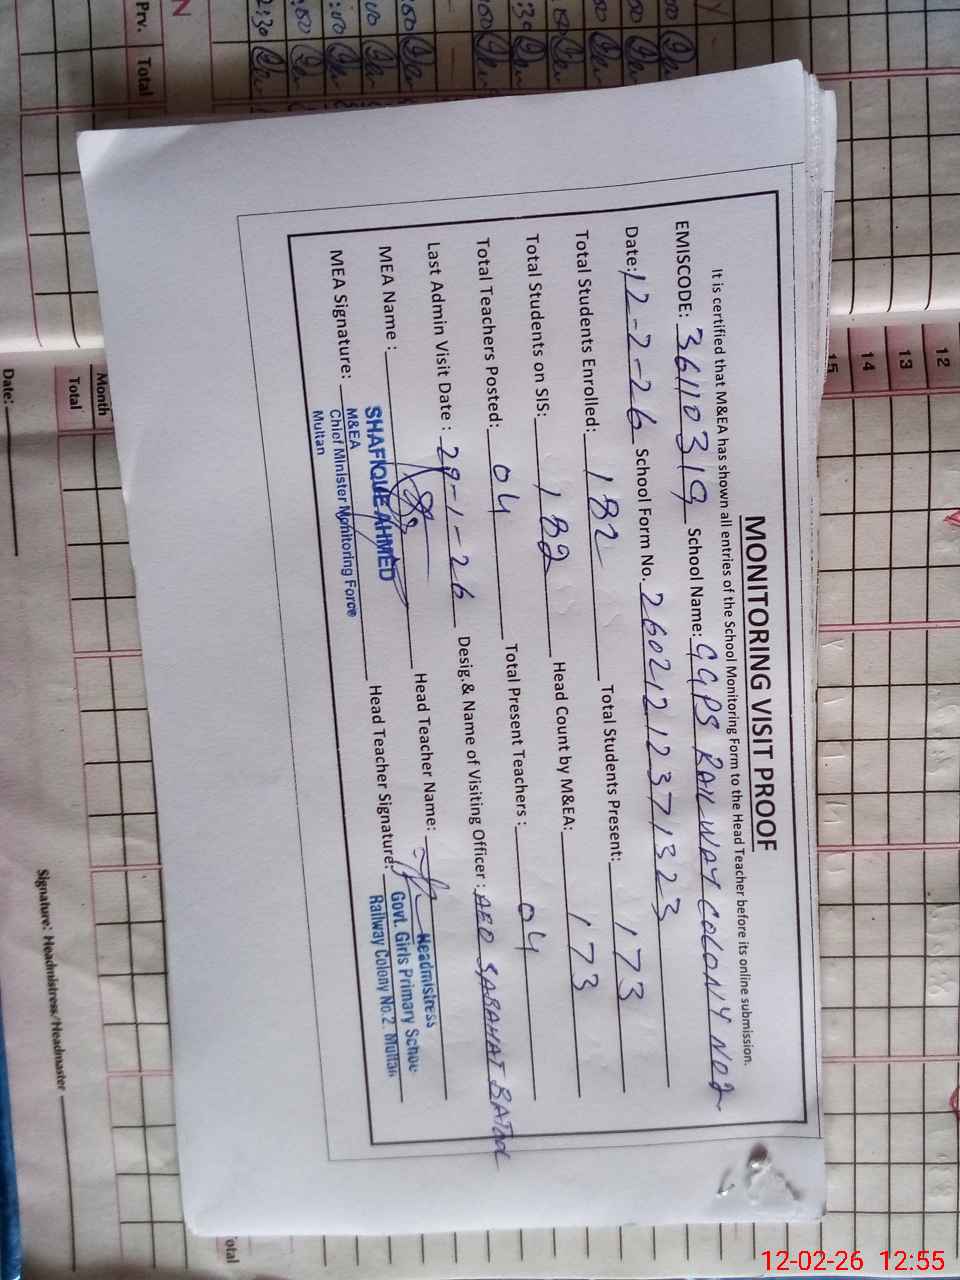 MONITORING VISIT PROOF
It is certified that M&EA has shown all entries of the School Monitoring Form to the Head Teacher before its online submission.
EMISCODE: 36110319 School Name: GGPS RAILWAY COLONY NO2
Date: 12-2-26 School Form No. 260212123713 23
Total Students Enrolled: 182 Total Students Present: 173
Total Students on SIS: 182 Head Count by M&EA: 173
Total Teachers Posted: 04 Total Present Teachers : 04
Last Admin Visit Date : 29-1-26 Desig.& Name of Visiting Officer : AEO SABAHAT BATOOL
MEA Name : Head Teacher Name:
MEA Signature: Head Teacher Signature:
SHAFIQUE AHMED
M&EA
Chief Minister Monitoring Force
Multan
Headmistress
Govt. Girls Primary School
Railway Colony No.2. Multan
Prv. Total
12
13
14
15
Month
Total
Date:
Signature: Headmistress/Headmaster
12-02-26 12:55